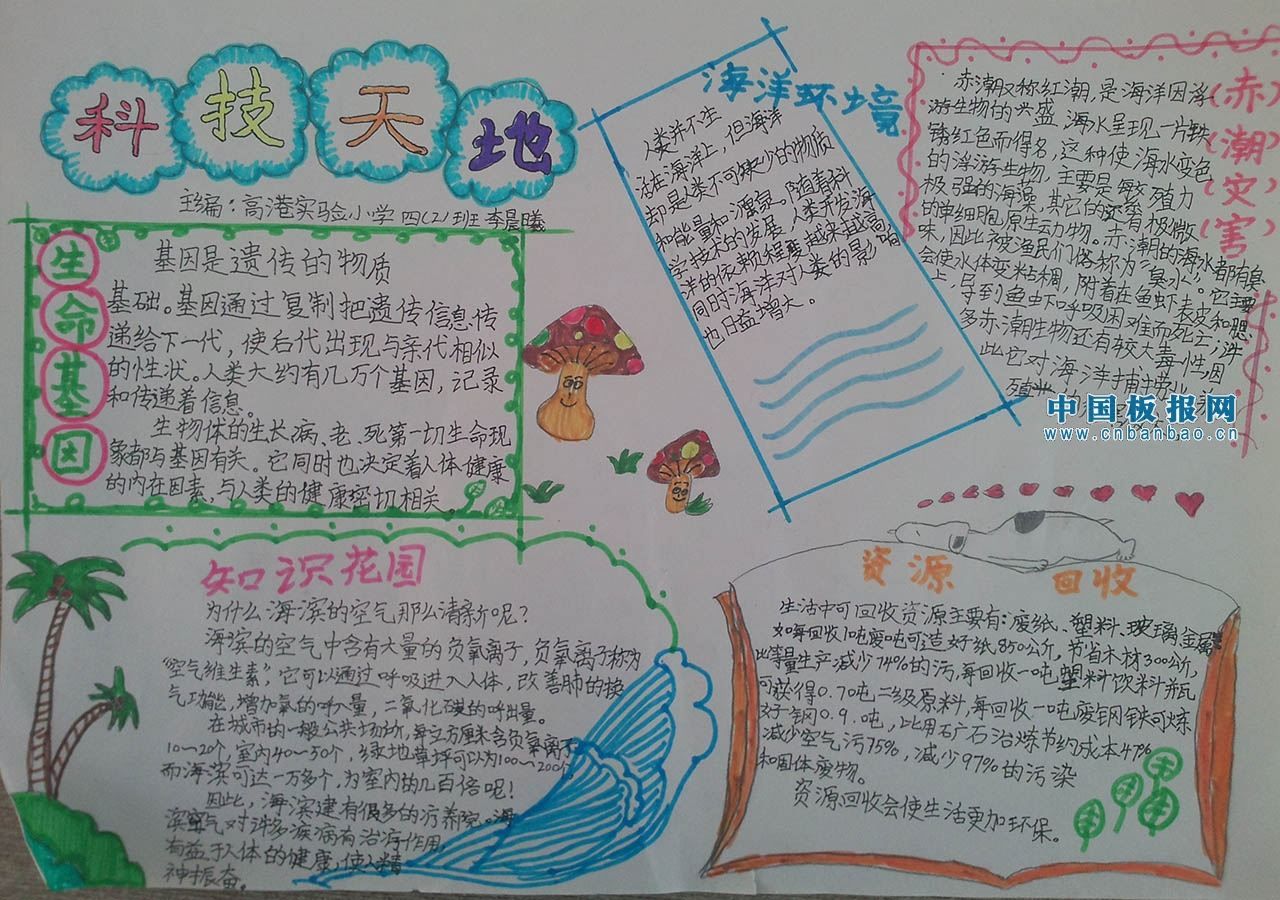 科技天地
主编：高港实验小学 四(2)班 李晨曦
生命基因
基因是遗传的物质
基础。基因通过复制把遗传信息传
递给下一代，使后代出现与亲代相似
的性状。人类大约有几万个基因，记录
和传递着信息。
生物体的生长病、老、死第一切生命现
象都与基因有关。它同时也决定着人体健康
的内在因素，与人类的健康密切相关。
海洋环境
人类并不生
活在海洋上，但海洋
却是人类不可缺少的物质
和能量和源泉。随着科
学技术的发展，人类开发海
洋的依赖程度越来越高，
同时海洋对人类的影响
也日益增大。
(赤)
(潮)
(灾)
(害)
赤潮又称红潮，是海洋因浮
游生物的兴盛 海水呈现一片铁
锈红色而得名，这种使海水变色
的浮游生物，主要是繁殖力
极强的海藻，其它的还有极微
的单细胞原生动物。赤潮的海水都有臭
味，因此被渔民们俗称为"臭水"。它主要
会使水体变粘稠，附着在鱼虾表皮和腮
上，导到鱼虾呼吸困难而死亡；许
多赤潮生物还有较大毒性，因
此它对海洋捕捞业、养
殖业的
中国板报网
www.cnbanbao.cn
知识花园
为什么海滨的空气那么清新呢？
海滨的空气中含有大量的负氧离子，负氧离子称为
"空气维生素"，它可以通过呼吸进入人体，改善肺的换
气功能，增加氧的呼入量，二氧化碳的呼出量。
在城市的一般公共场所，每立方厘米含负氧离子
10～20个，室内40～50个，绿地草坪可以为100～200个，
而海滨可达一万多个，为室内的几百倍呢！
因此，海滨建有很多的疗养院。海
滨空气对许多疾病有治疗作用，
有益于人体的健康，使人精
神振奋。
资源 回收
生活中可回收资源主要有：废纸、塑料、玻璃、金属等
如每回收1吨废吨可造好纸850公斤，节省木材300公斤，
比等量生产减少74%的污，每回收一吨塑料饮料并瓦
可获得0.7吨二级原料，每回收一吨废钢铁可炼
好钢0.9.吨，比用石广石沿炼节约成本47%
减少空气污75%，减少97%的污染
和固体废物。
资源回收会使生活更加环保。